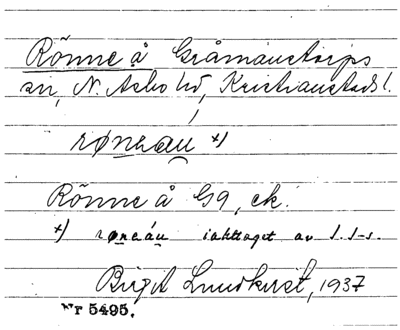 Rönne å Gråmanstorps
sn, N. Asbo hd, Kristianstads l.
røneau x)
Rönne å G9, ek.
x) røneáu iakttaget av I. I-s.
Birgit Lundkvist, 1937
Nr 5495.